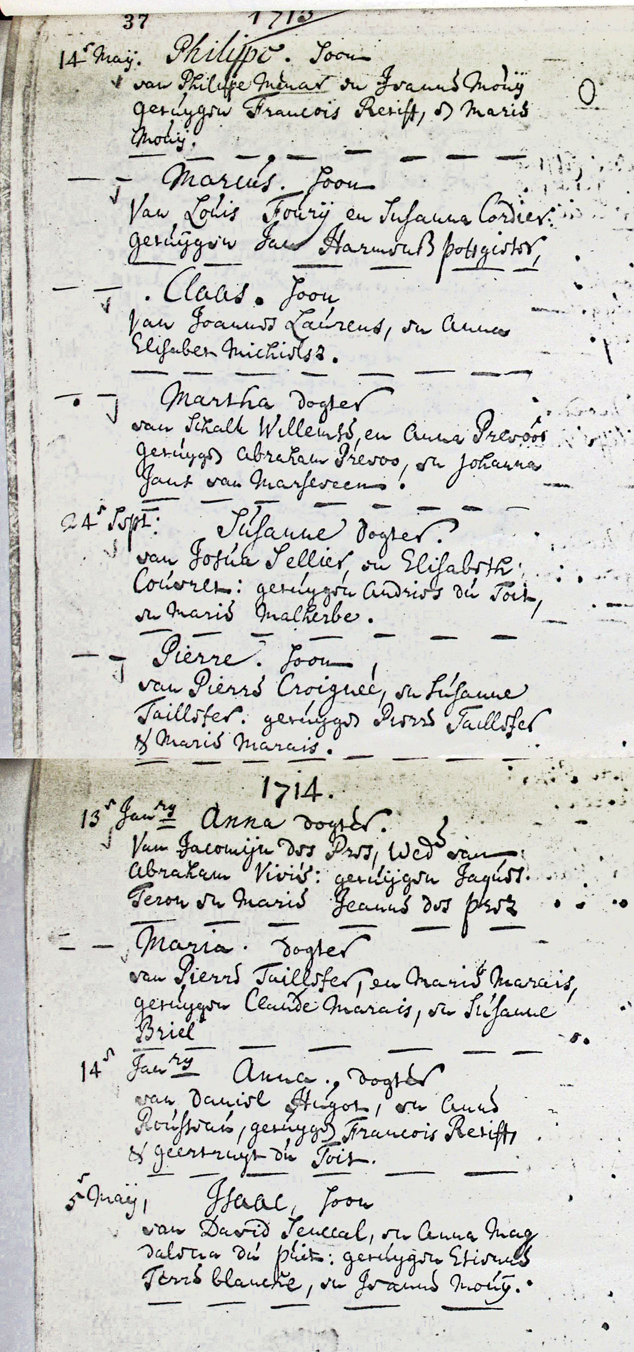 37 1713
14 Maij. Philipe. Soon
van Philipe Menar en Jeanne Moüy
getuygen Francois Retift, & Marie
Moüy.
Marcus. Soon
Van Loüis Foürij en Susanna Cordier.
getuygen Jan Harmensz potgieter,
Claas. Soon
Van Joannes Laurens, en Anna
Elisabet Michielsz.
Martha dogter
van Schalk Willemse, en Anna Prevoos
getuyge Abraham Prevoo, en Johanna
Jant van Marseveen.
24 Sept: Susanne dogter.
van Josua Sellier, en Elisabeth
Couvret: getuygen Andries du Toit,
en Marie Malherbe.
Pierre. Soon,
van Pierre Croignee, en Susanne
Taillefer: getuyge Pierre Taillefer
& Marie Marais.
1714.
13 Janry Anna dogter.
Van Jacomijn des Pres, Wede van
Abraham Vivié: getuygen Jaques
Teron en Marie Jeanne des prez
Maria. dogter
van Pierre Taillefer, en Marie Marais,
getuygen Claude Marais, en Susanne
Briel
14 Janry Anna, dogter
van Daniel Hugot, en Anne
Rousseau, getuyge Francois Retift,
& geertruyt du Toit.
5 Maij, Isaac, Soon
van David Senecal, en Anna Mag
dalena du puit: getuygen Etienne
Terre blanche, en Jeanne Moüy.